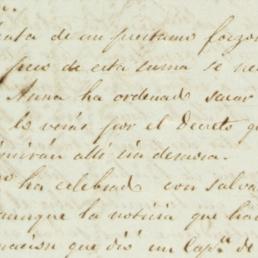 n.
enta de un prestamo forzos
preo de esta suma se ne
Anna ha ordenado sacar
lo verás por el Decreto q
mirán allí sin demora.
ha celebrado con salva
aunque la noticia que ha
nacion que dió un Capn. de